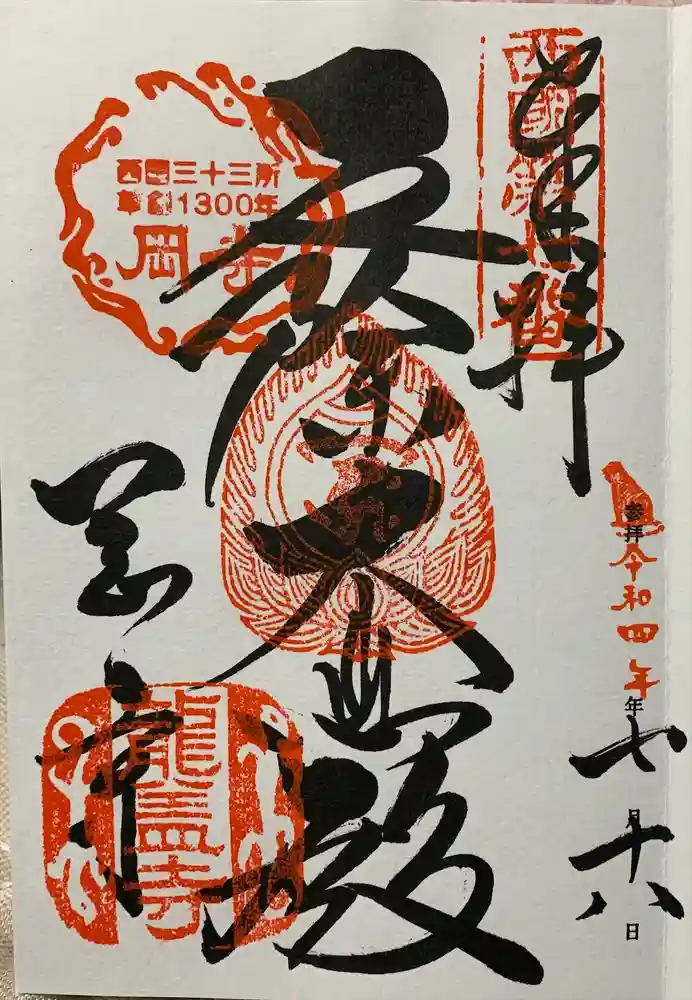 奉拝
西國第七番
参拝令和四年
年七月十八日
大悲殿
西国三十三所
草創1300年
岡寺
岡寺
龍蓋寺